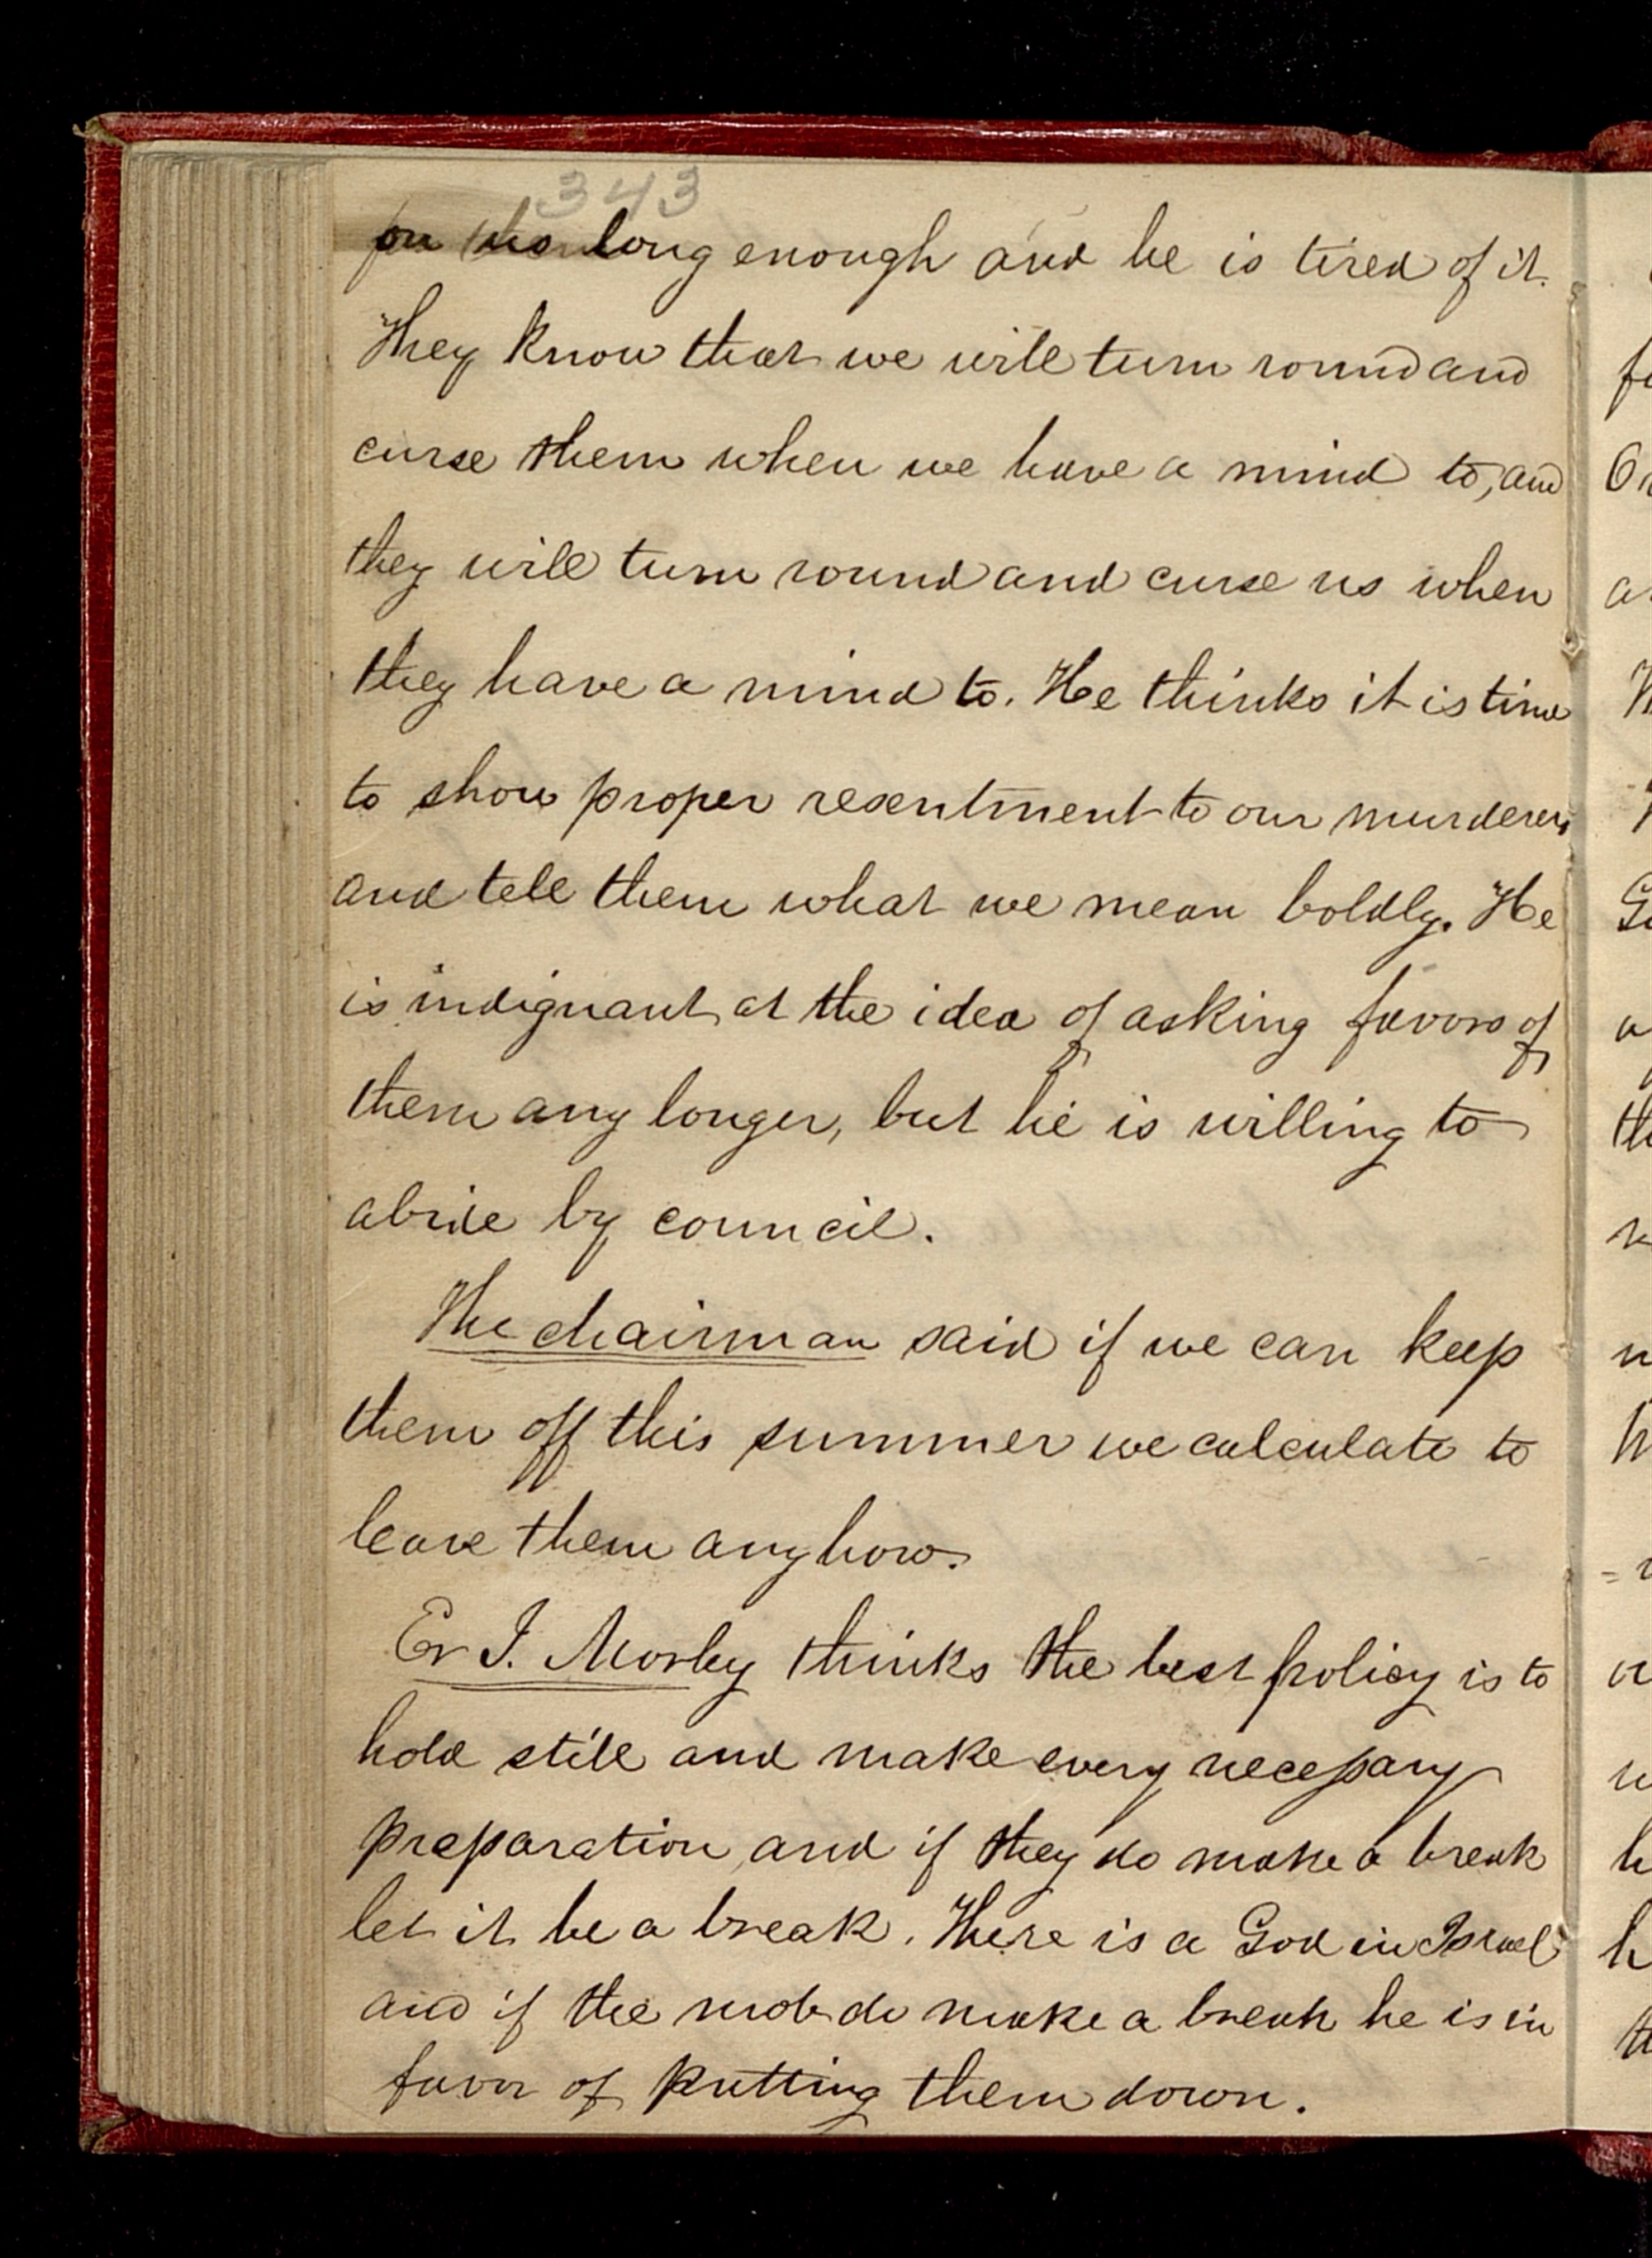 343
for us long enough and he is tired of it.
They know that we will turn round and
curse them when we have a mind to, and
they will turn round and curse us when
they have a mind to. He thinks it is time
to show proper resentment to our murderers
and tell them what we mean boldly. He
is indignant at the idea of asking favors of
them any longer, but he is willing to
abide by council.
The chairman said if we can keep
them off this summer we calculate to
leave them anyhow.
Er I. Morley thinks the best policy is to
hold still and make every necessary
preparation, and if they do make a break
let it be a break. There is a God in Israel
and if the mob do make a break he is in
favor of putting them down.